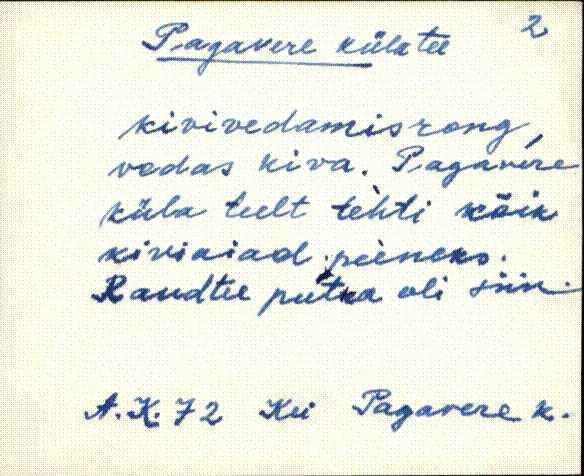 2
Pagavere külatee
kivivedamisrong
vedas kiva. Pagavere
küla teelt tehti kõik
kiviaiad peeneks.
Raudtee putka oli siin.
A.K. 72 Kei Pagavere k.